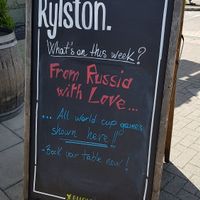 Rylston.
What's on this week?
From Russia
with Love...
... All world cup games
shown here!!
- Book your table now!